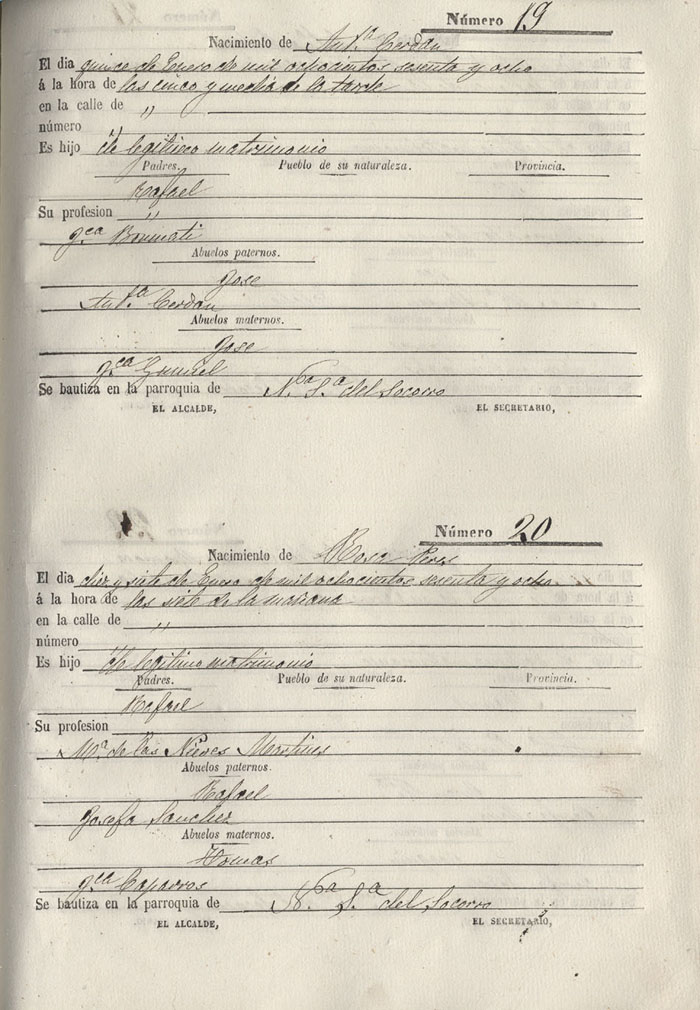 Número 19
Nacimiento de Antª Cerdan
El dia quince de Enero de mil ochocientos sesenta y ocho
á la hora de las cinco y media de la tarde
en la calle de "
número "
Es hijo de legitimo matrimonio
Padres. Pueblo de su naturaleza. Provincia.
Rafael
Su profesion "
Bonmati
Abuelos paternos.
Jose
Antª Cerdan
Abuelos maternos.
Jose
Se bautiza en la parroquia de Nª Sª del Socorro
EL ALCALDE, EL SECRETARIO,
Número 20
Nacimiento de Rosa Peres
El dia diez y siete de Enero de mil ochocientos sesenta y ocho
á la hora de las siete de la mañana
en la calle de "
número "
Es hijo de legitimo matrimonio
Padres. Pueblo de su naturaleza. Provincia.
Rafael
Su profesion
Mª de las Nieves Martines
Abuelos paternos.
Rafael
Josefa Sanchez
Abuelos maternos.
Tomas
Caparros
Se bautiza en la parroquia de Nª Sª del Socorro
EL ALCALDE, EL SECRETARIO,